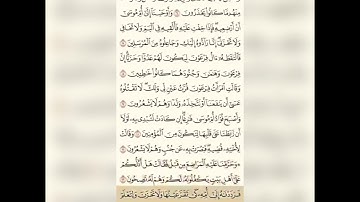 مِنْهُم مَّا كَانُوا۟ يَحْذَرُونَ ۝ وَأَوْحَيْنَآ إِلَىٰٓ أُمِّ مُوسَىٰٓ
أَنْ أَرْضِعِيهِ ۖ فَإِذَا خِفْتِ عَلَيْهِ فَأَلْقِيهِ فِى ٱلْيَمِّ وَلَا تَخَافِى
وَلَا تَحْزَنِىٓ ۖ إِنَّا رَآدُّوهُ إِلَيْكِ وَجَاعِلُوهُ مِنَ ٱلْمُرْسَلِينَ ۝
فَٱلْتَقَطَهُۥٓ ءَالُ فِرْعَوْنَ لِيَكُونَ لَهُمْ عَدُوًّا وَحَزَنًا ۗ إِنَّ
فِرْعَوْنَ وَهَٰمَٰنَ وَجُنُودَهُمَا كَانُوا۟ خَٰطِـِٔينَ ۝
وَقَالَتِ ٱمْرَأَتُ فِرْعَوْنَ قُرَّتُ عَيْنٍ لِّى وَلَكَ ۖ لَا تَقْتُلُوهُ
عَسَىٰٓ أَن يَنفَعَنَآ أَوْ نَتَّخِذَهُۥ وَلَدًا وَهُمْ لَا يَشْعُرُونَ ۝
وَأَصْبَحَ فُؤَادُ أُمِّ مُوسَىٰ فَٰرِغًا ۖ إِن كَادَتْ لَتُبْدِى بِهِۦ لَوْلَآ
أَن رَّبَطْنَا عَلَىٰ قَلْبِهَا لِتَكُونَ مِنَ ٱلْمُؤْمِنِينَ ۝ وَقَالَتْ
لِأُخْتِهِۦ قُصِّيهِ ۖ فَبَصُرَتْ بِهِۦ عَن جُنُبٍ وَهُمْ لَا يَشْعُرُونَ ۝
۞ وَحَرَّمْنَا عَلَيْهِ ٱلْمَرَاضِعَ مِن قَبْلُ فَقَالَتْ هَلْ أَدُلُّكُمْ
عَلَىٰٓ أَهْلِ بَيْتٍ يَكْفُلُونَهُۥ لَكُمْ وَهُمْ لَهُۥ نَٰصِحُونَ ۝
فَرَدَدْنَٰهُ إِلَىٰٓ أُمِّهِۦ كَىْ تَقَرَّ عَيْنُهَا وَلَا تَحْزَنَ وَلِتَعْلَمَ